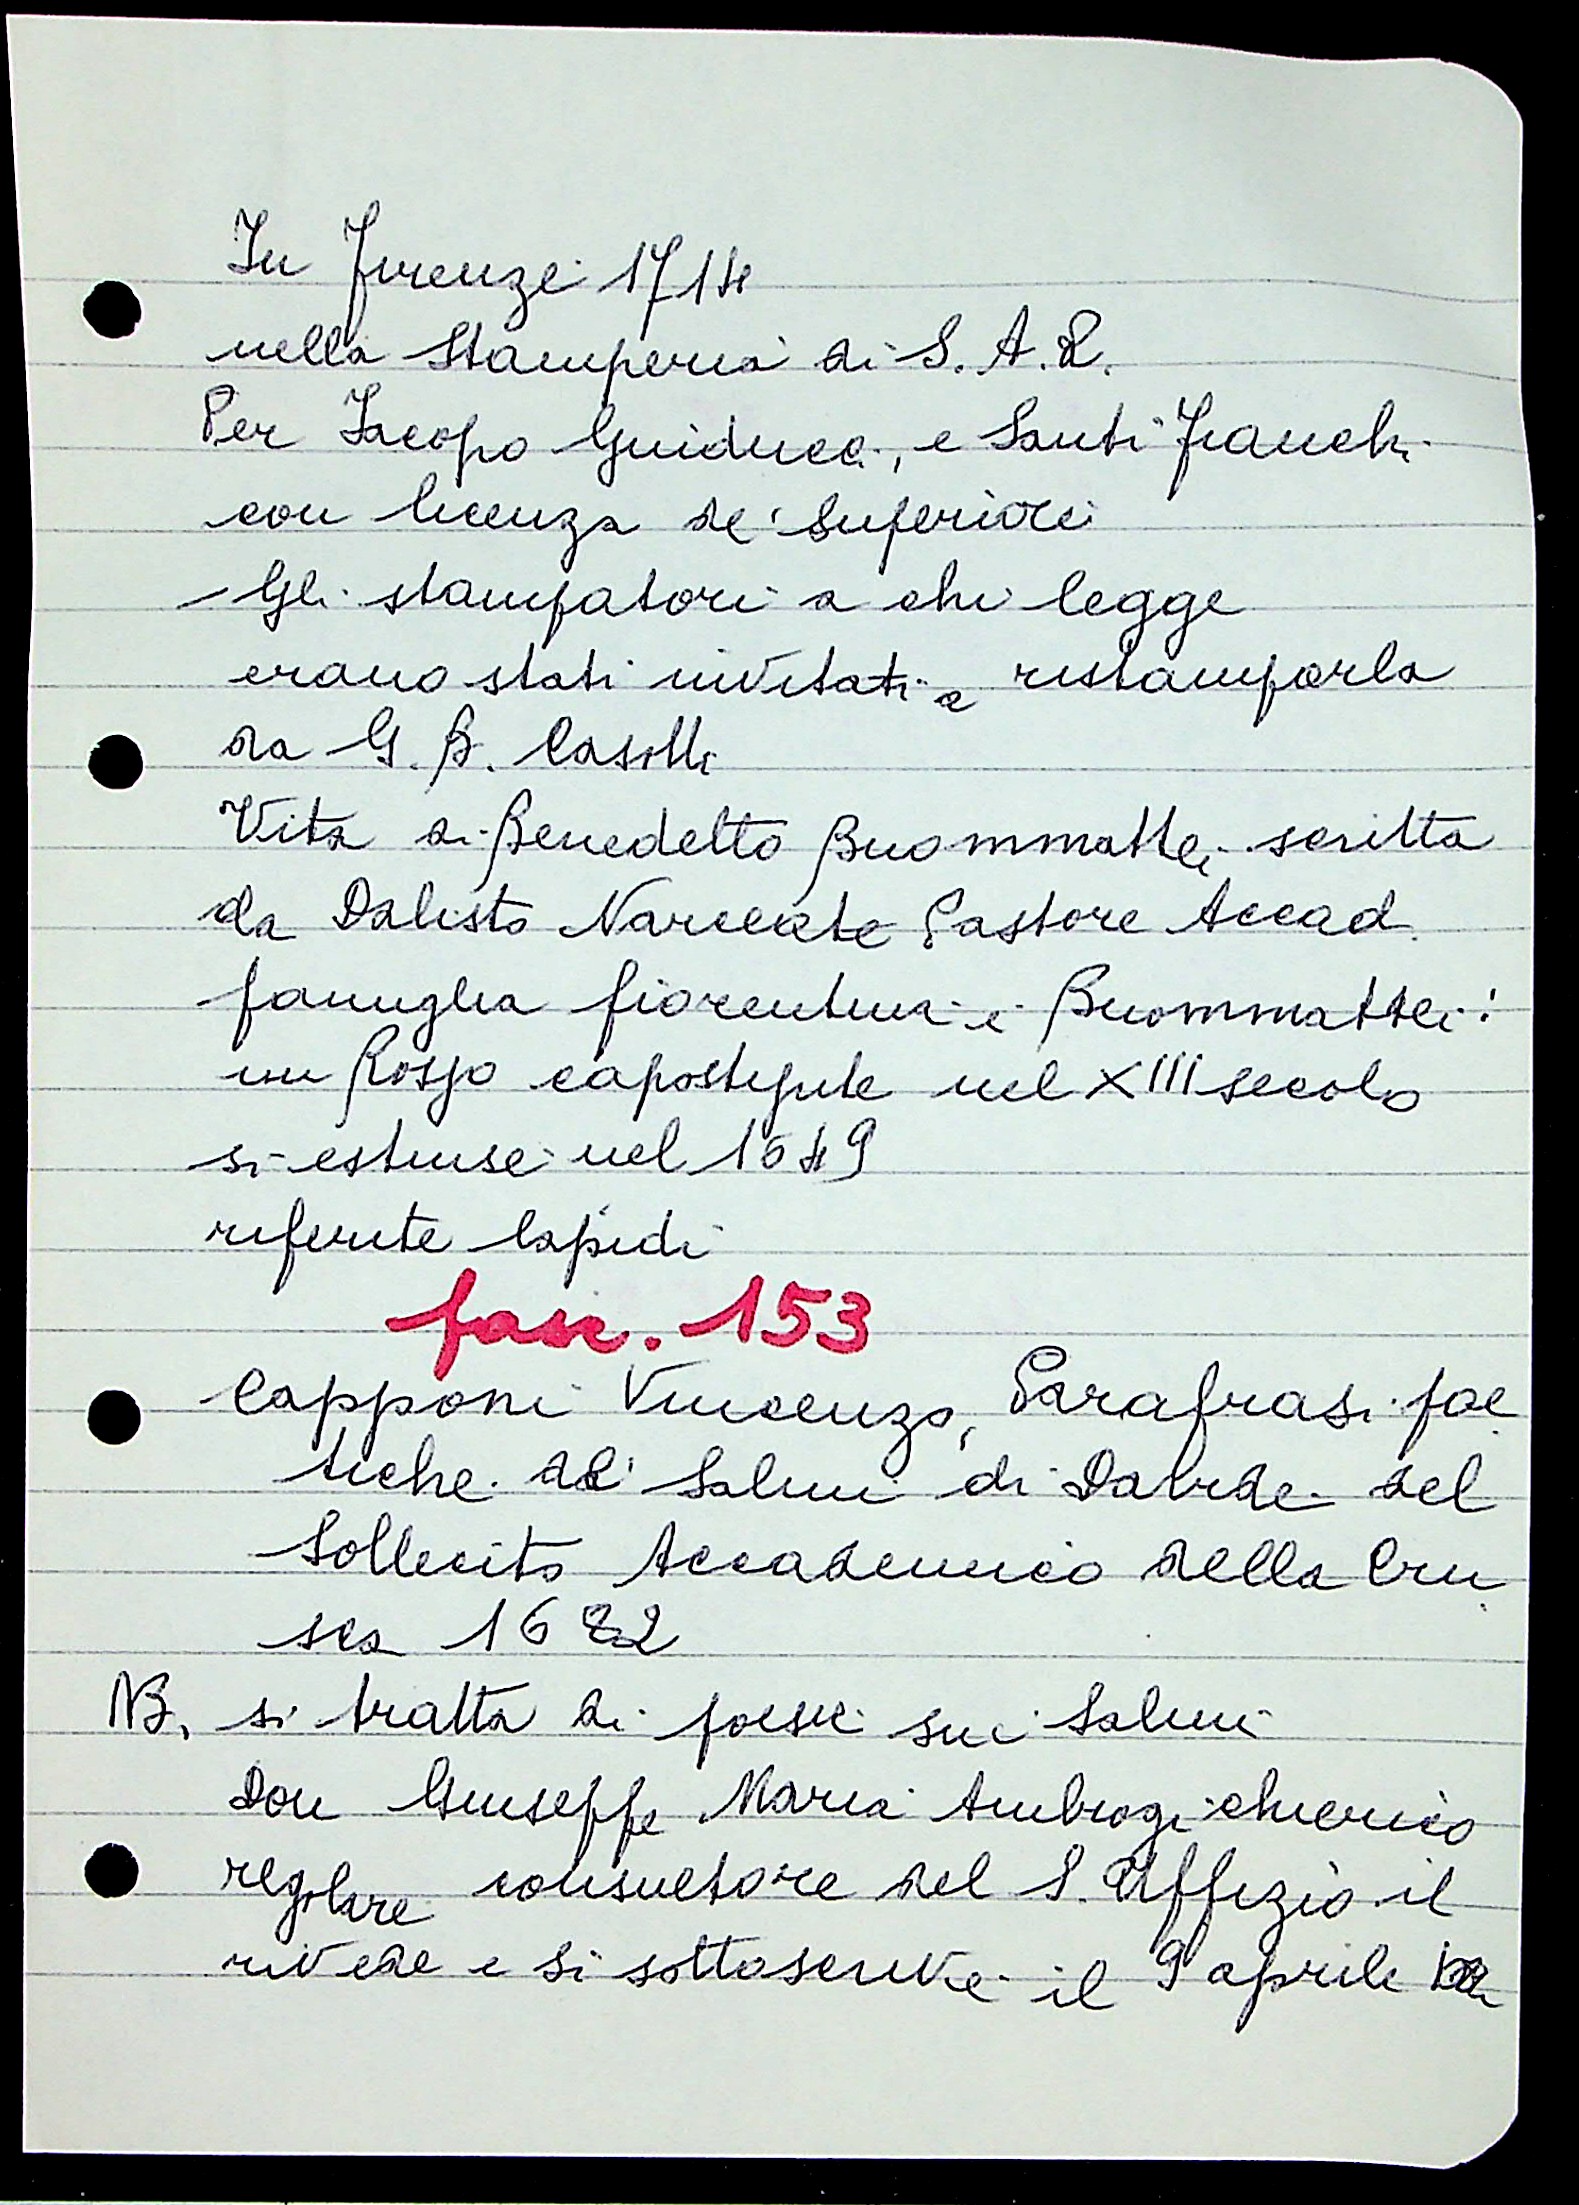 In Firenze 1714
nella Stamperia di S. A. R.
Per Iacopo Guiducci, e Santi Franchi
con licenza de' Superiori
- Gli stampatori a chi legge
erano stati invitati a ristamparla
da G. B. Casotti
Vita di Benedetto Buommattei scritta
da Dalisto Narceate Pastore Accad.
famiglia fiorentina i Buommattei:
un Rosso capostipite nel XIII secolo
si estinse nel 1649
riferite lapidi
fasc. 153
Capponi Vincenzo, Parafrasi poe
tiche de' Salmi di Davide del
Sollecito Accademico della Cru
sca 1682
NB. si tratta di poesie sui Salmi
Don Giuseppe Maria Ambrogi chierico
regolare consultore del S. Uffizio il
rivede e si sottoscrive il 9 aprile